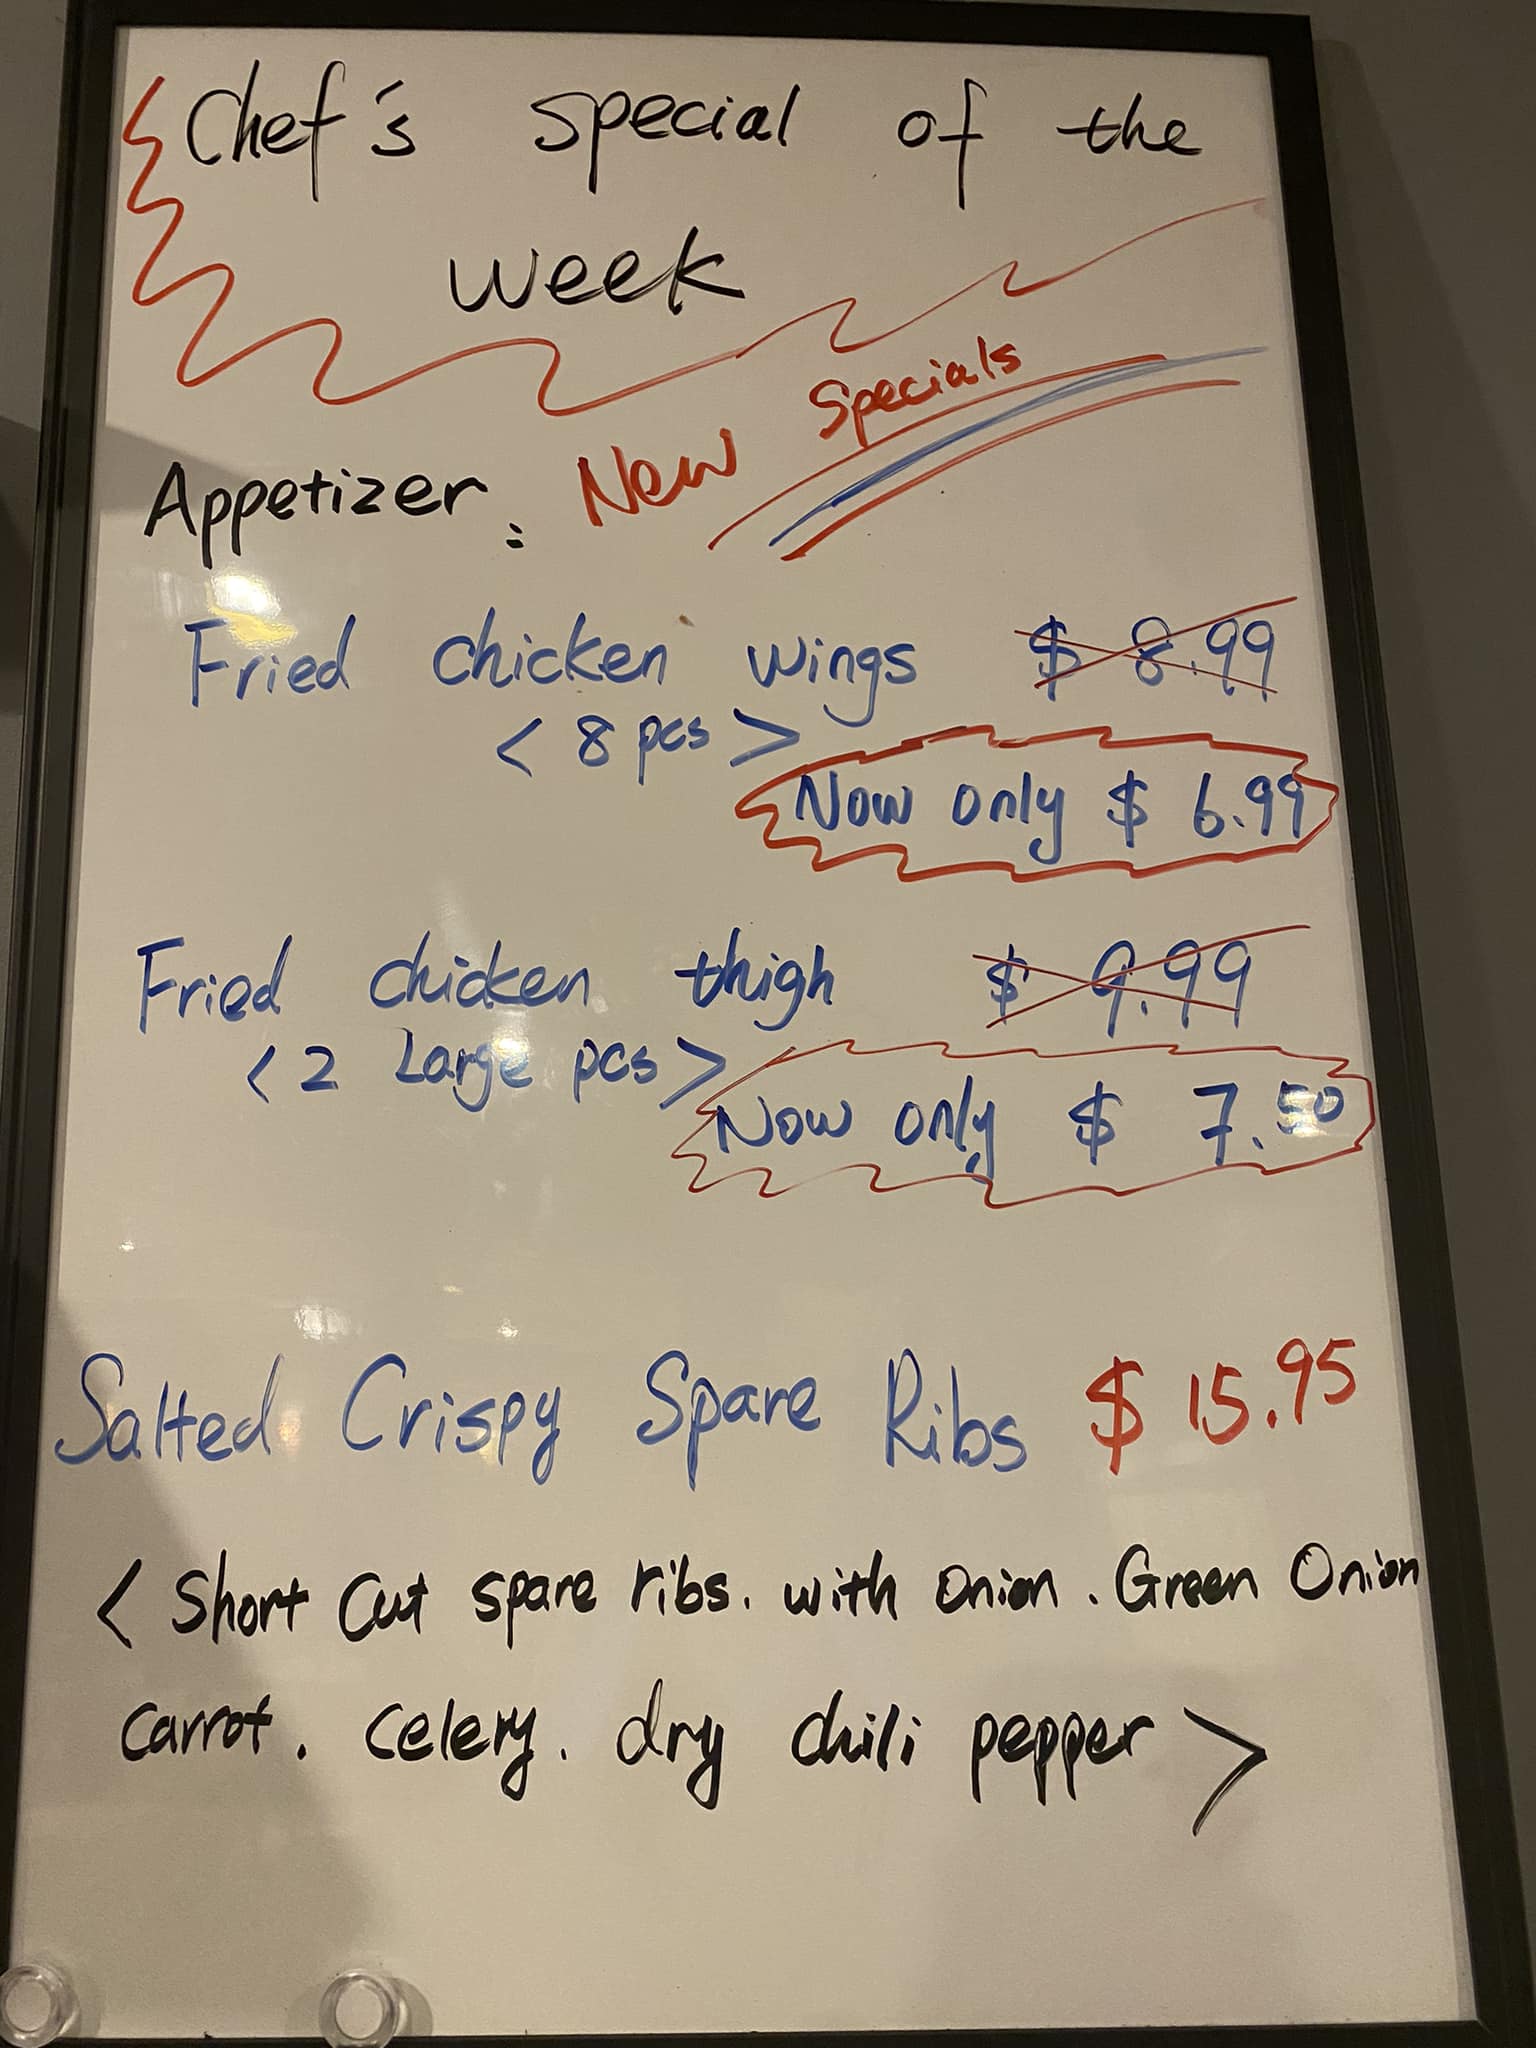 Chef's special of the
week
Appetizer: New Specials
Fried chicken wings $ 8.99
< 8 pcs >
Now only $ 6.99
Fried chicken thigh $ 9.99
< 2 Large pcs >
Now only $ 7.50
Salted Crispy Spare Ribs $ 15.95
< Short Cut spare ribs. with onion. Green Onion
carrot. celery. dry chili pepper >